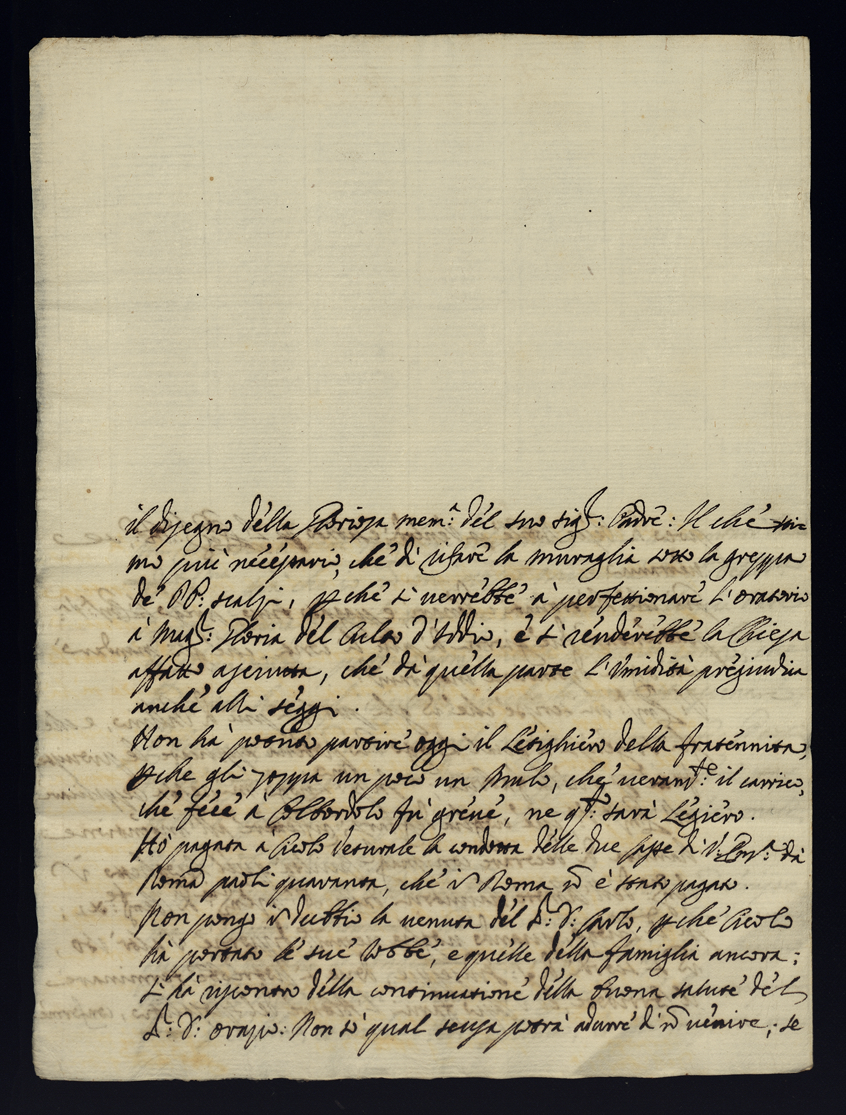 il disegno della Gloriosa mem.a del suo sig.r Padre: Il che sti=
mo più necessario, che di rifare la muraglia sotto la greppa
de' PP: scalzi, p che si verrebbe à perfettionare l'oratorio
à mag.r Gloria del Culto d'Iddio, e si renderebbe la Chiesa
affatto asciutta, che da quella parte l'Umidità pregiudica
anche alli seggi.
Non hà potuto partire oggi il Letighiero della fraternita,
p che gli zoppa un poco un Mulo, che veram.te il carico,
che fece à Colbordolo fù greve, ne q.to sarà Legiero.
Hò pagata à Vetturale la condotta delle due casse di V: da
Roma paoli quaranta, che in Roma nõ è stato pagato.
Non pongo in dubbio la venuta del S.r D: Carlo, p che
hà portato le sue robbe, e quelle della famiglia ancora;
si hà riscontro della continuatione della buona salute del
S.r D: Orazio: Non sò qual scusa potrà adurre di nõ venire; se